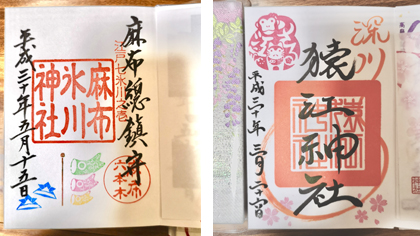 麻布総鎮守
江戸七氷川
麻布
氷川
神社
六本木
平成三十年五月十五日
深川
猿江神社
平成三十年三月二十六日